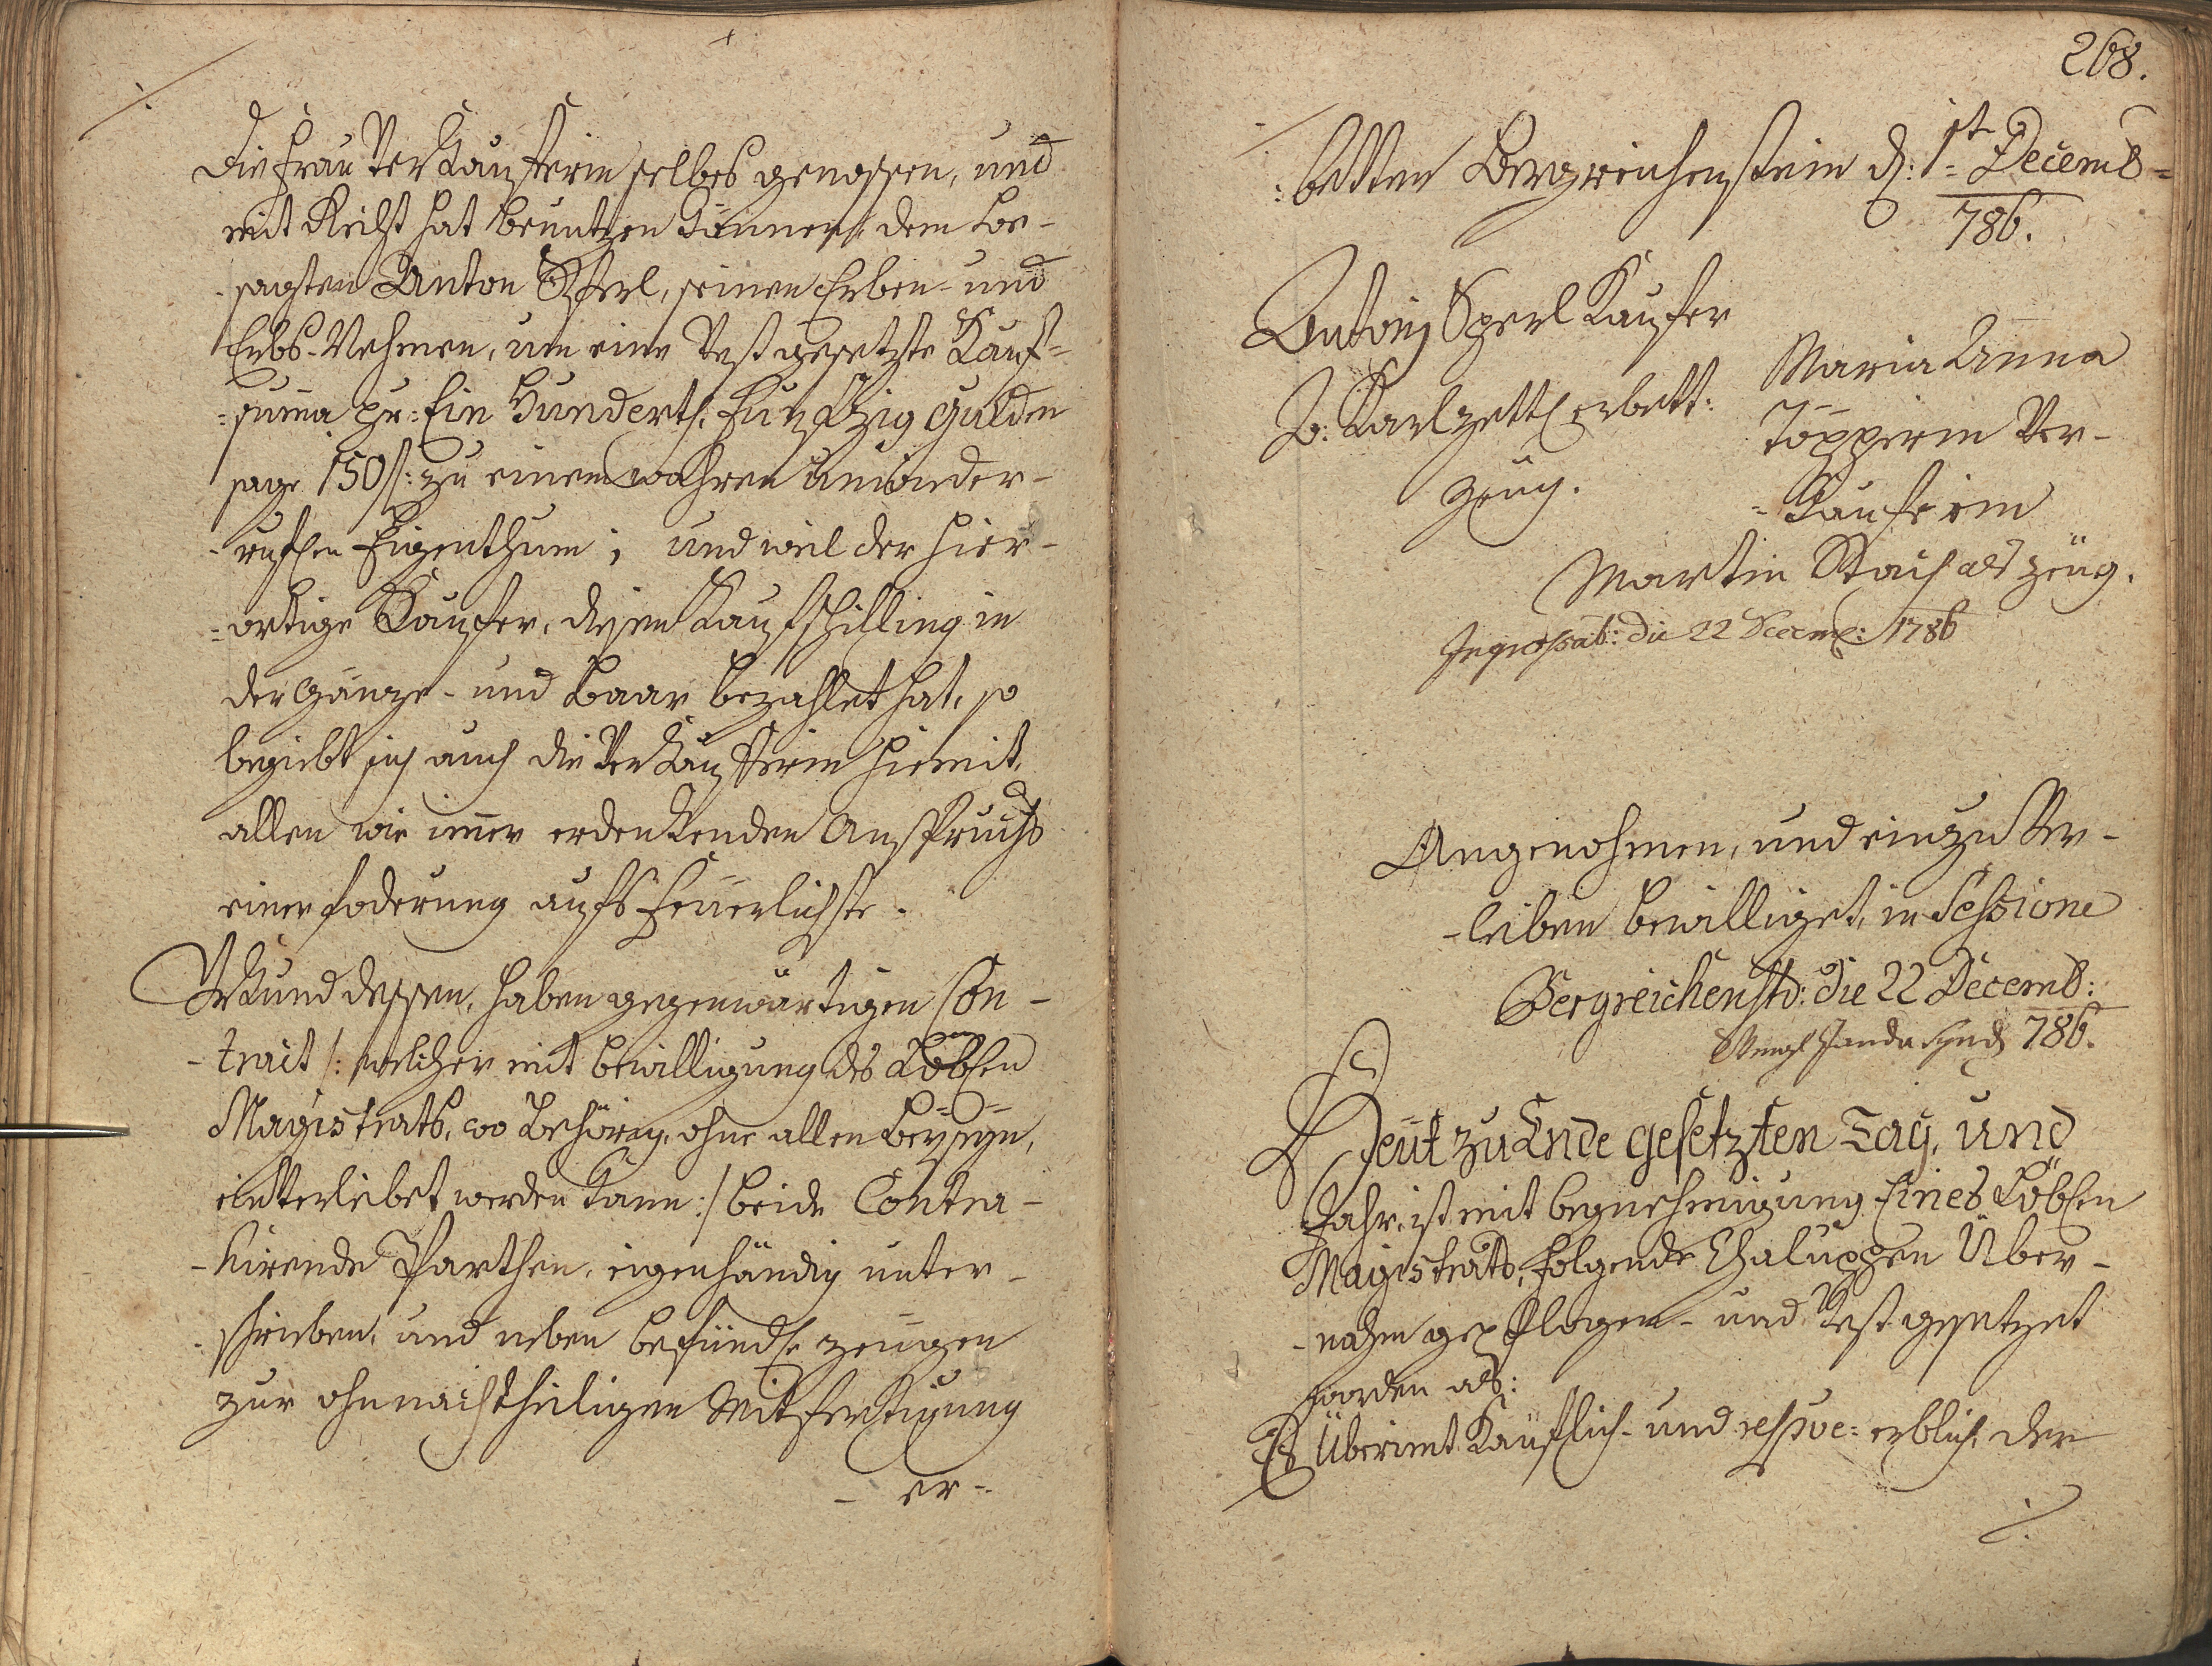 die Frau Verkäuferin selbes genossen, und
mit Recht hat benutzen können, dem be-
-sagten Anton Sperl, seinen Erben- und
Erbs-Nehmern, um eine Vestgesetzte Kauf=
=suma pr: Ein Hundert, Funfzig Gulden
sage 150 f: zu einem wahren unwieder-
-ruflen Eigenthum; und weil der hier-
=ortige Kaufer, diesen Kaufschilling in
der Gänze- und Baar bezahlet hat, so
begiebt sich auch die Verkäuferin hiemit,
allen wie imer erdenkenden Anspruchs
einer foderung aufs Feuerlichste.
Urkund dessen, haben gegenwärtigen Con-
-tract /: welcher mit bewilligung des Löblen
Magistrats, wo Behörig, ohne allen beyseyn,
einverleibet werden kann :/ beide Contra-
-hirende Parthen, eigenhändig unter-
-schrieben, und neben befindle zeugen
zur ohnnachtheiligen Mitfertigung
- er-
268.
:betten Bergreichenstein d: 1st Decemb=
786.
Antonj Sperl Kaufer
Maria Anna
Töpperin Ver-
-kauferin
J: Karl erbett:
Zeug.
Martin als Zeug.
Ingrossat: die 22 Decemb: 1786
Angenohmen, und einzu Ver-
-leiben bewilliget, in Sessione
Bergreichenstd: die 22 Decemb:
786.
Wenzl Janda Synd
Heut zu Ende gesetzten Tag, und
Jahr, ist mit begnehmigung Eines Löblen
Magistrats, folgende Chaluppen Über-
-nahm gepflogen- und Vest gesetzet
worden als:
Es Überimt Käuflich- und respve: erblich, der
./.